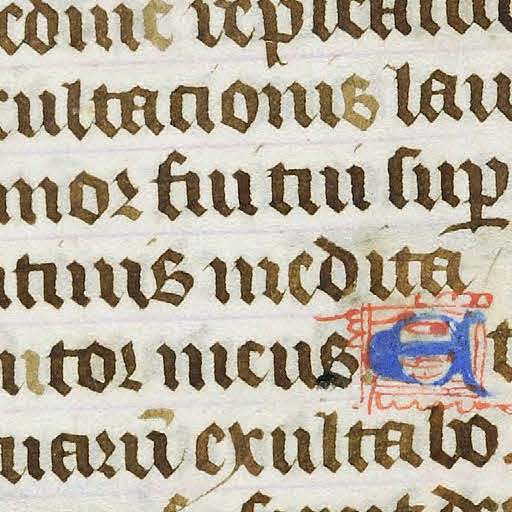 edine repleatu
xultacionis lau
mor fui tui sup
utinis medita
iutor meus E t
uarū exultabo.